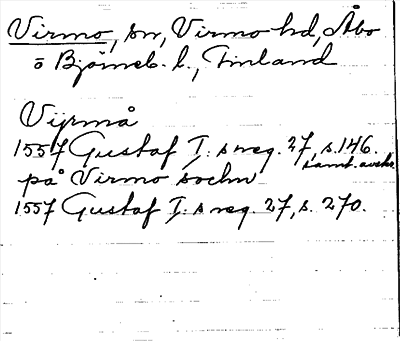 Virmo, sn, Virmo hd, Åbo
o Björneb. l., Finland
Vijrmå
1557 Gustaf I:s reg. 27, s. 146.
samt. avskr.
på Virmo sochn
1557 Gustaf I:s reg. 27, s. 270.